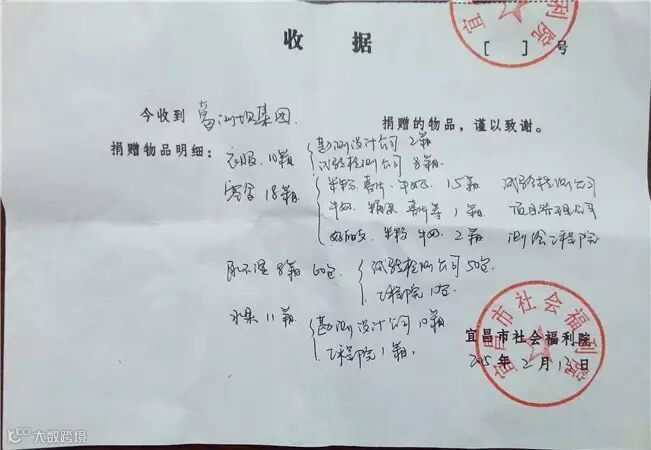 宜昌市社会福利院
收 据
[ ] 号
今收到 葛洲坝集团. 捐赠的物品，谨以致谢。
捐赠物品明细：
衣服 10箱 { 勘测设计公司 2箱
试验检测公司 8箱
零食 18箱 { 米粉 薯片 牛奶 15箱 试验检测公司
牛奶 糖果 薯片等 1箱 项目管理公司
米粉 牛奶 2箱 测绘工程院
尿不湿 8箱 60包 { 试验检测公司 50包
工程院 10包.
水果 11箱 { 勘测设计公司 10箱
工程院 1箱.
宜昌市社会福利院
2015年 2月 13日
宜昌市社会福利院
大数跨境